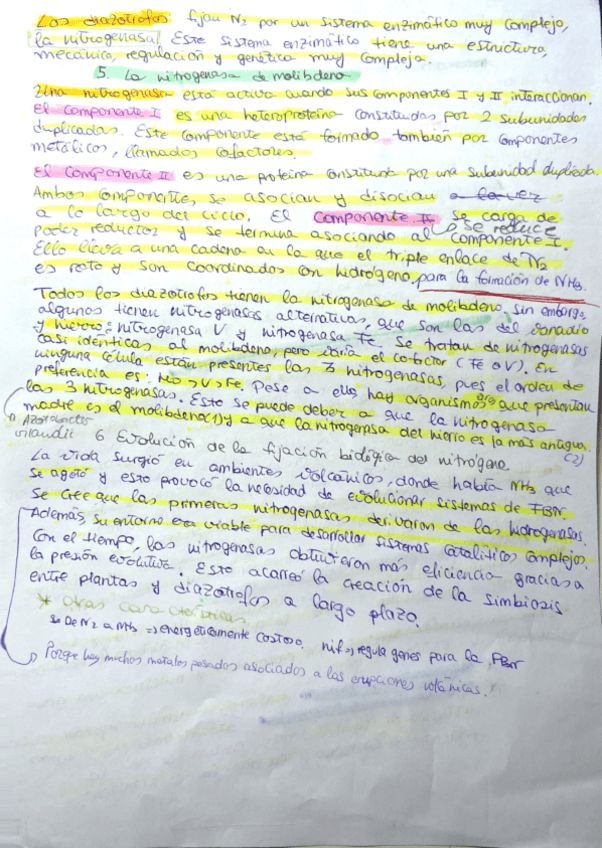 Los diazotrofos fijan N2 por un sistema enzimático muy complejo,
la nitrogenasa. Este sistema enzimático tiene una estructura,
mecánica, regulación y genética muy compleja.
5. La nitrogenasa de molibdeno
Una nitrogenasa está activa cuando sus componentes I y II interaccionan.
El componente I es una heteroproteína constituidas por 2 subunidades
duplicadas. Este componente está formado también por componentes
metálicos, llamados cofactores.
El componente II es una proteína constituida por una subunidad duplicada.
Ambos componentes, se asocian y disocian
a lo largo del ciclo. El componente II se carga de
poder reductor y se termina asociando al componente I.
se reduce
Ello lleva a una cadena en la que el triple enlace de N2
es roto y son coordinados con hidrógeno, para la formación de NH3.
Todos los diazotrofos tienen la nitrogenasa de molibdeno, sin embargo
algunos tienen nitrogenasas alternativas, que son las del vanadio
y hierro: nitrogenasa V y nitrogenasa Fe. Se tratan de nitrogenasas
casi idénticas al molibdeno, pero varía el cofactor (Fe o V). En
ninguna célula están presentes las 3 nitrogenasas, pues el orden de
preferencia es Mo > V > Fe. Pese a ello, hay organismos que presentan
las 3 nitrogenasas. Esto se puede deber a que la nitrogenasa
madre es el molibdeno (1) y a que la nitrogenasa del hierro es la más antigua.
(2)
Azotobacter
vinlandii
6 Evolución de la fijación biológica del nitrógeno
La vida surgió en ambientes volcánicos, donde había NH3 que
se agotó y esto provocó la necesidad de evolucionar sistemas de FBN.
Se cree que las primeras nitrogenasas derivaron de las hidrogenasas.
Además, su entorno era viable para desarrollar sistemas catalíticos complejos.
Con el tiempo, las nitrogenasas obtuvieron más eficiencia gracias a
la presión evolutiva. Esto acarreó la creación de la simbiosis
entre plantas y diazotrofos a largo plazo.
* Otras características
De N2 a NH3 => energéticamente costoso. nif => regula genes para la FBN
Porque hay muchos metales pesados asociados a las erupciones volcánicas.